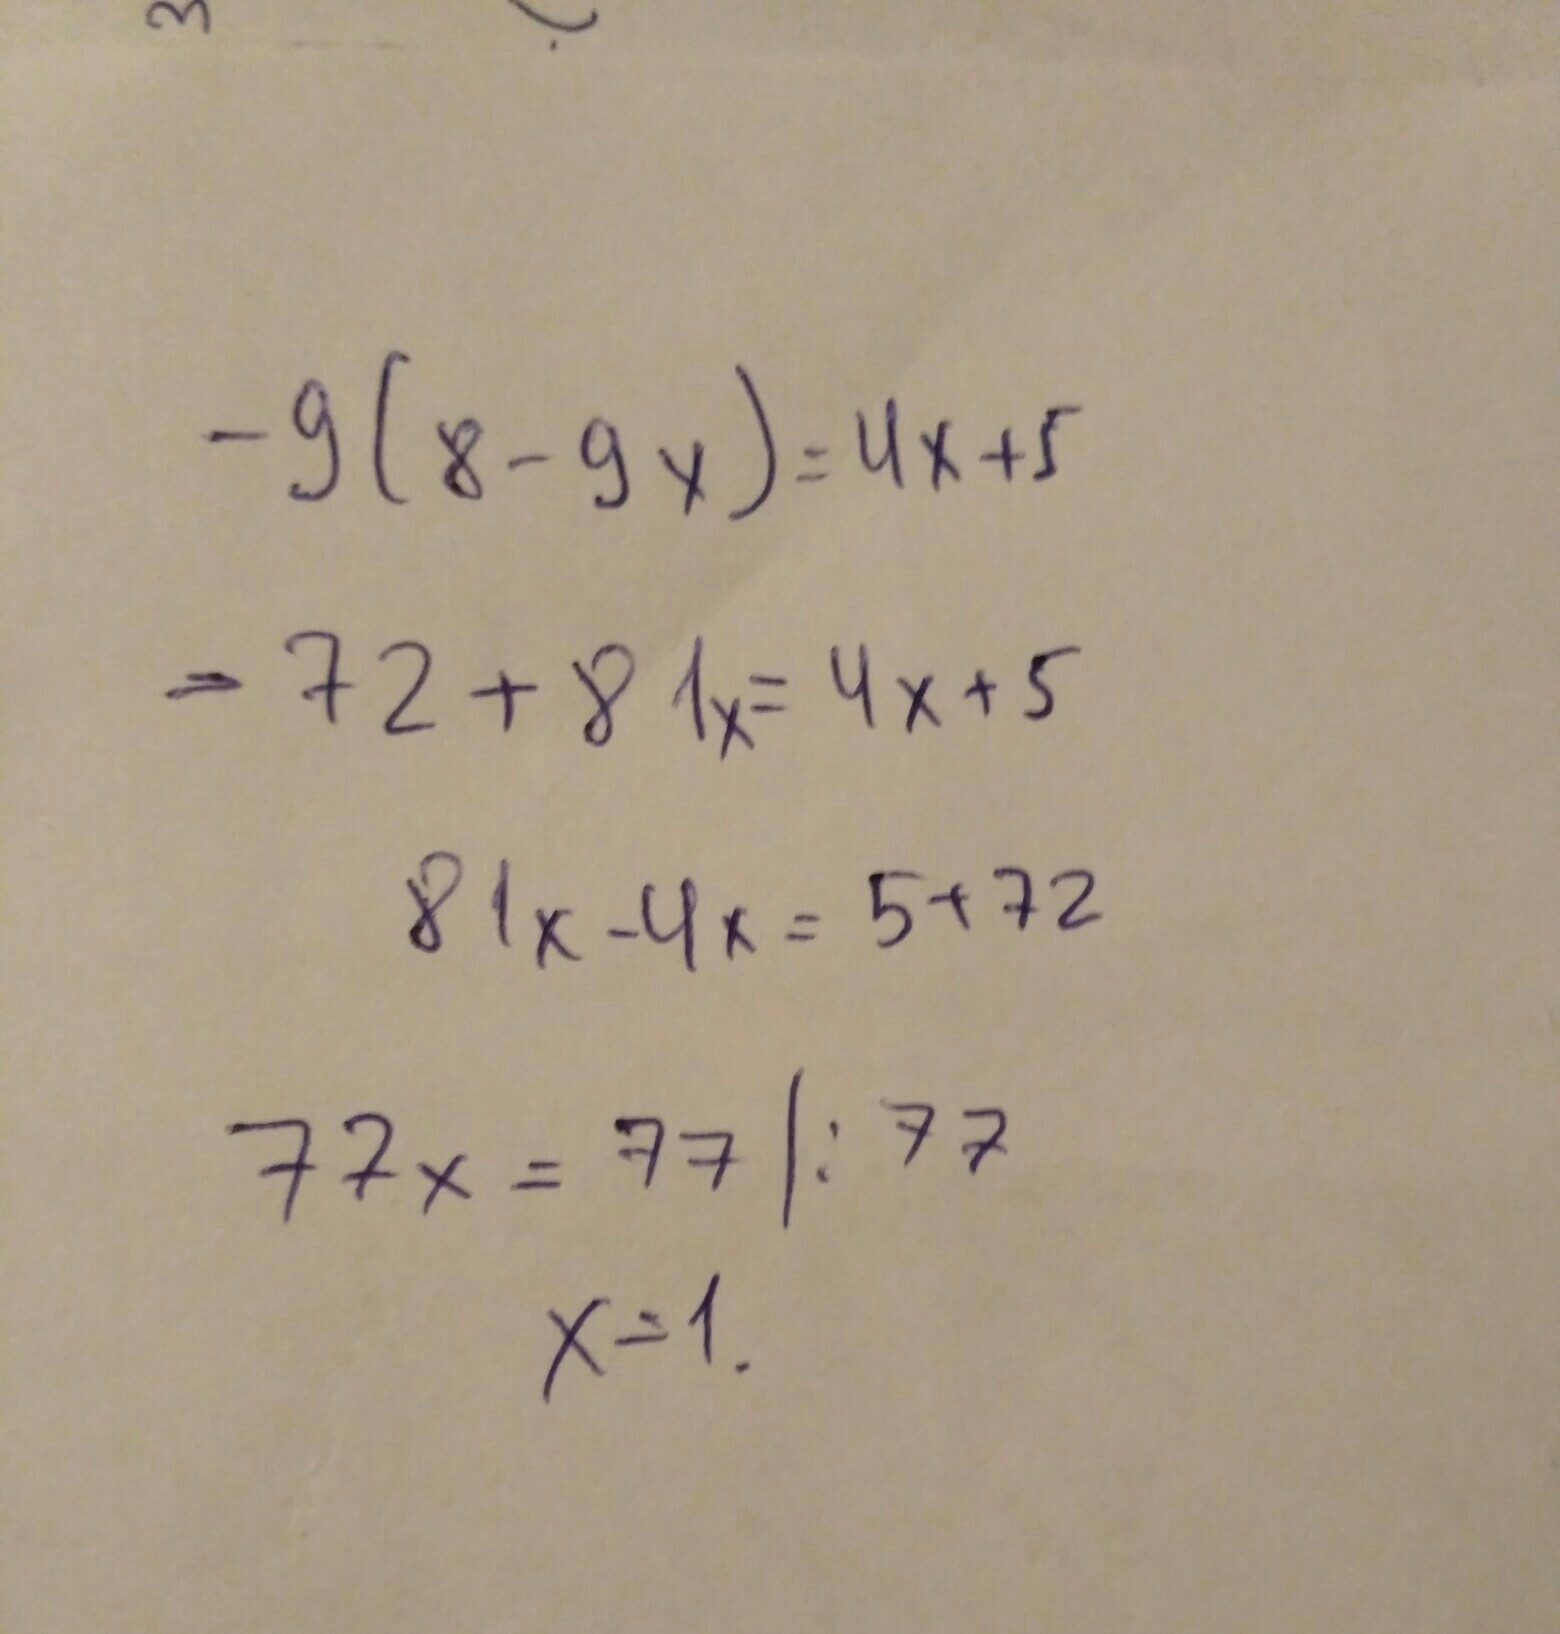 -9(8-9x)=4x+5
-72+81x=4x+5
81x-4x=5+72
77x=77|:77
x=1.